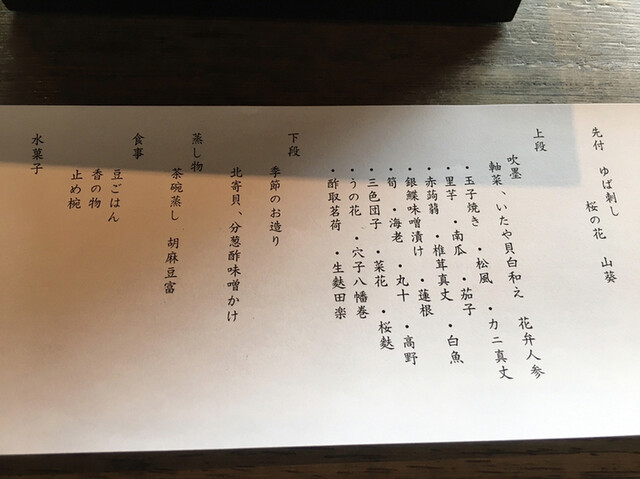 先付　ゆば刺し
桜の花　山葵
上段
吹墨
軸菜、いたや貝白和え　花弁人参
・玉子焼き　・松風　・カニ真丈
・里芋　・南瓜　・茄子
・赤蒟蒻　・椎茸真丈　・白魚
・銀鰈味噌漬け　・蓮根
・筍　・海老　・丸十　・高野
・三色団子　・菜花　・桜麩
・うの花　・穴子八幡巻
・酢取茗荷　・生麩田楽
下段
季節のお造り
北寄貝、分葱酢味噌かけ
蒸し物
茶碗蒸し　胡麻豆富
食事
豆ごはん
香の物
止め椀
水菓子